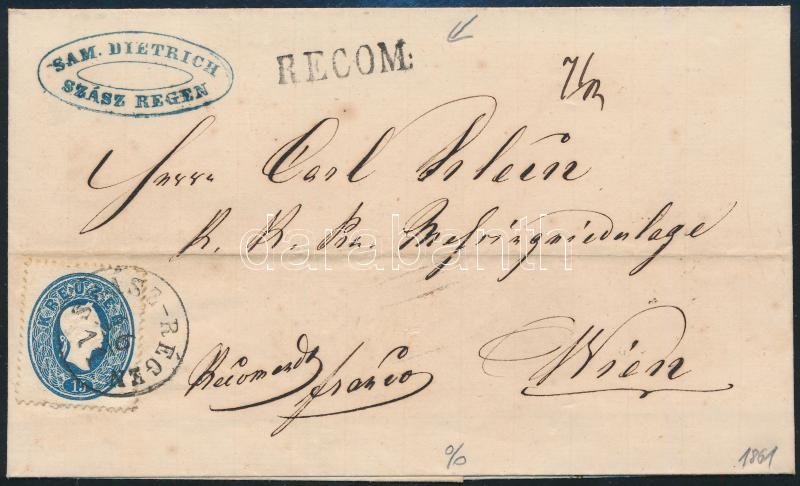 SAM. DIETRICH
SZÁSZ REGEN
RECOM:
Herrn Carl Klein
K. K. Pr. Messingniederlage
darabanth
KREUZER
15
SZÁSZ-REGEN
Recomandt
franco
Wien
%
1861